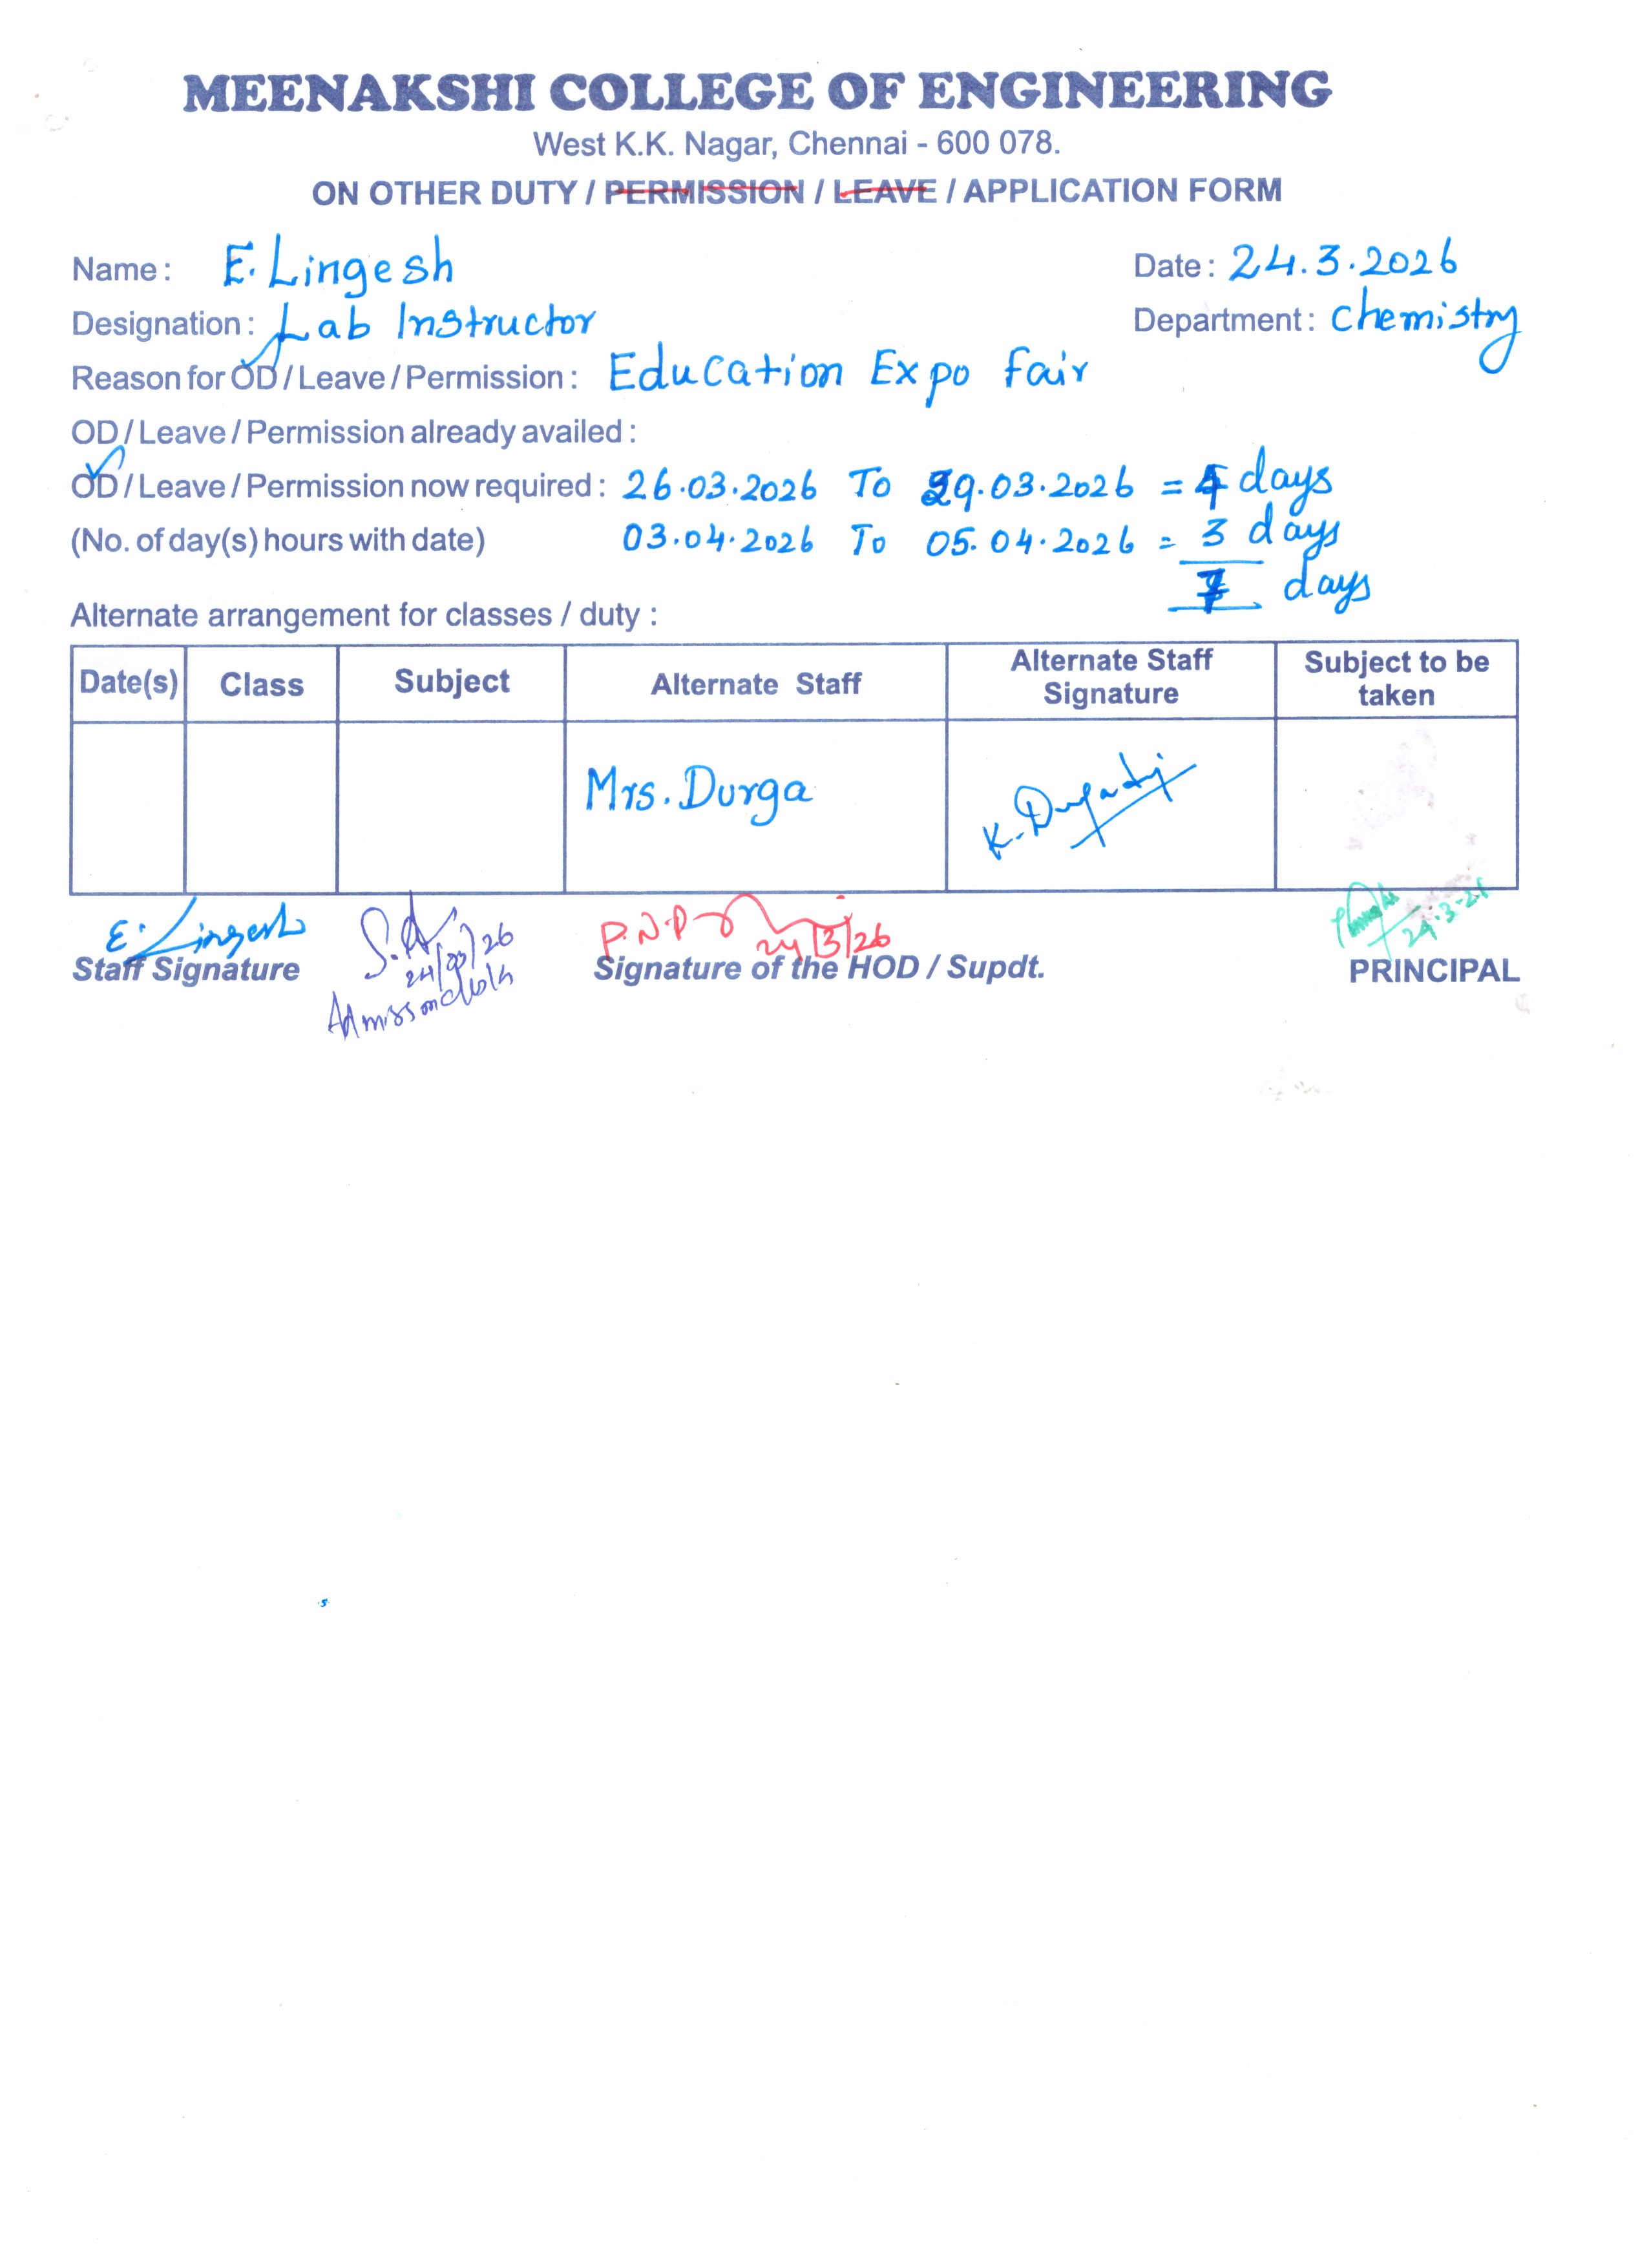 MEENAKSHI COLLEGE OF ENGINEERING
West K.K. Nagar, Chennai - 600 078.
ON OTHER DUTY / PERMISSION / LEAVE / APPLICATION FORM
Name : E. Lingesh Date : 24.3.2026
Designation : Lab Instructor Department : Chemistry
Reason for OD / Leave / Permission : Education Expo fair
OD / Leave / Permission already availed :
OD / Leave / Permission now required : 26.03.2026 To 29.03.2026 = 4 days
(No. of day(s) hours with date) 03.04.2026 To 05.04.2026 = 3 days
7 days
Alternate arrangement for classes / duty :
Date(s) Class Subject Alternate Staff Alternate Staff Signature Subject to be taken
Mrs. Durga K. Durgadevi
E. Lingesh S.A 24/03/26 P.N.P 24/3/26 24.3.26
Staff Signature Signature of the HOD / Supdt. PRINCIPAL